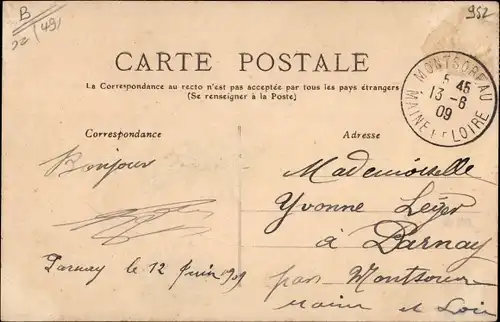 B
952
CARTE POSTALE
La Correspondance au recto n'est pas acceptée par tous les pays étrangers
(Se renseigner à la Poste)
MONTSOREAU
5 45
13 -6
09
MAINE ET LOIRE
Correspondance
Adresse
Bonjour
Mademoiselle
Yvonne Léger
à Parnay
Parnay le 12 Juin 1909
par Montsoreau
Maine et Loire